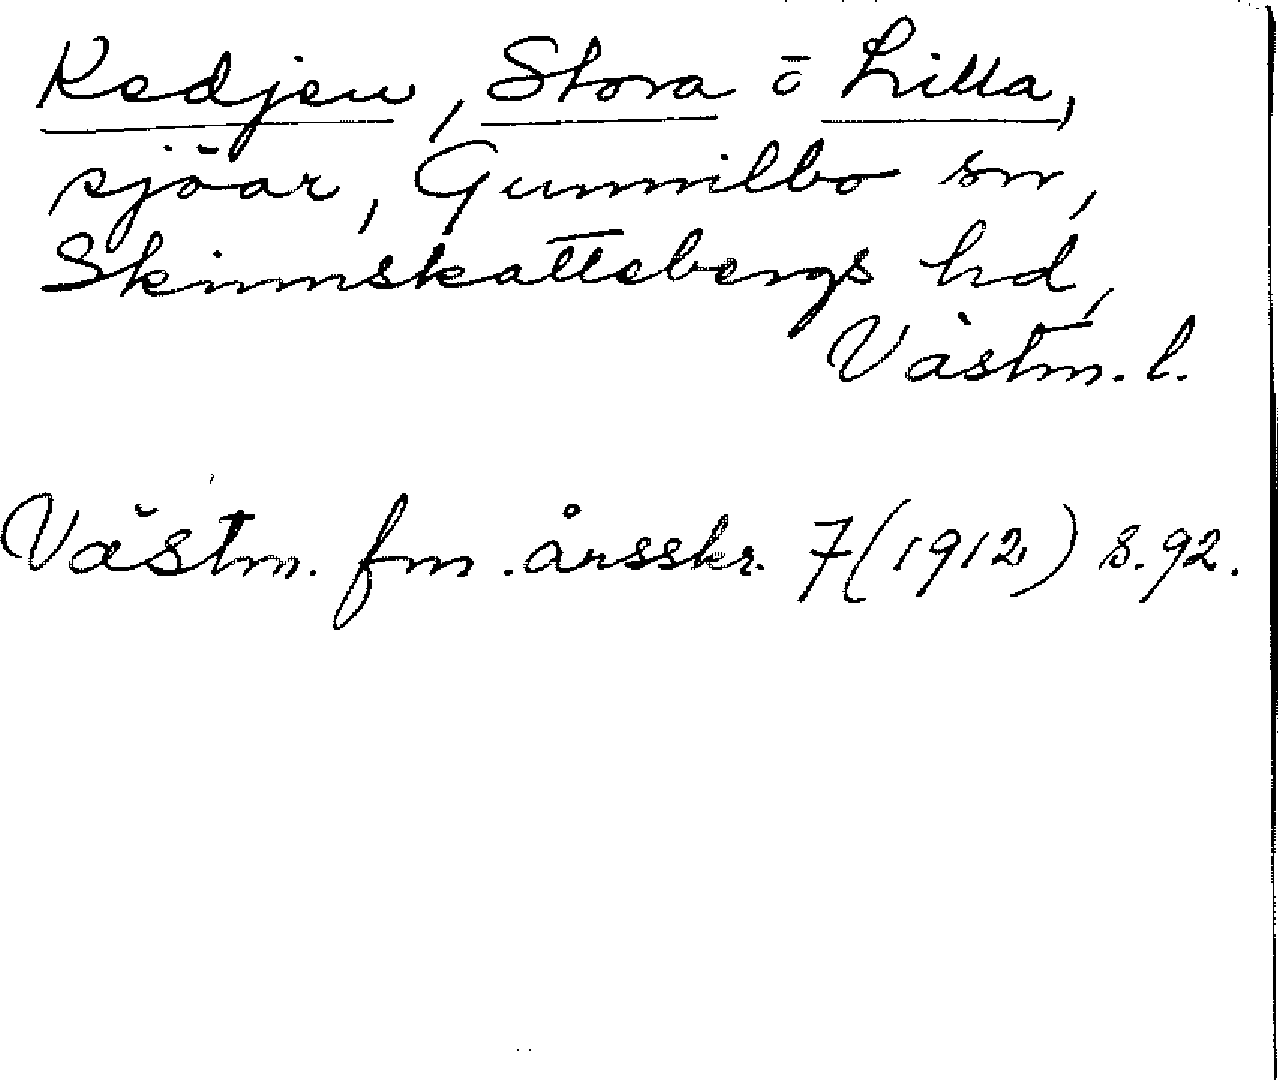 Kedjen, Stora ō Lilla,
sjöar, Gunnilbo sn,
Skinnskattebergs hd,
Västm. l.
Västm. fm. årsskr. 7(1912) s. 92.